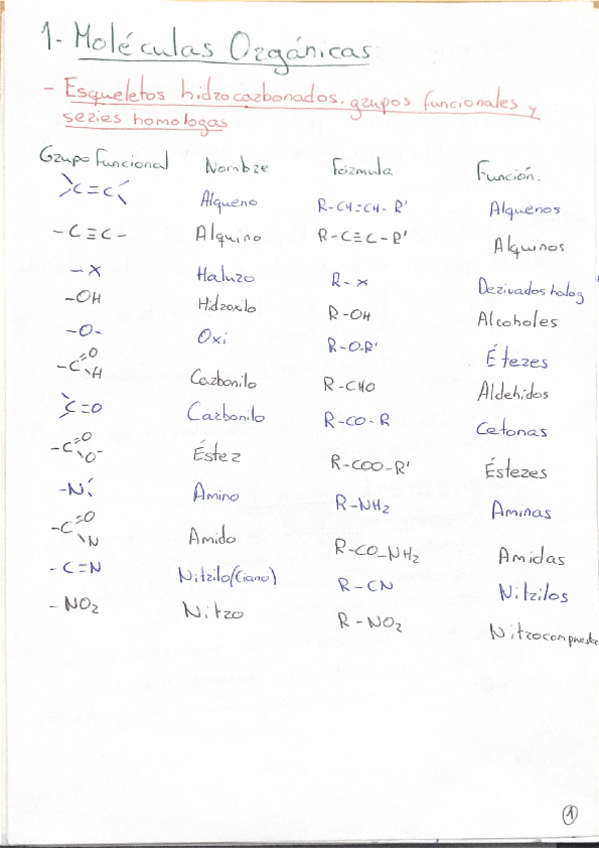 1- Moléculas Orgánicas
- Esqueletos hidrocarbonados, grupos funcionales y
series homologas
Grupo Funcional Nombre Fórmula Función.
C=C Alqueno R-CH=CH-R' Alquenos
-C≡C- Alquino R-C≡C-R' Alquinos
-X Haluro R-X Derivados halog
-OH Hidroxilo R-OH Alcoholes
-O- Oxi R-O-R' Éteres
-C=O H Carbonilo R-CHO Aldehidos
C=O Carbonilo R-CO-R Cetonas
-C=O O- Éster R-COO-R' Ésteres
-N Amino R-NH₂ Aminas
-C=O N Amido R-CO-NH₂ Amidas
-C=N Nitrilo (Ciano) R-CN Nitrilos
-NO₂ Nitro R-NO₂ Nitrocompuestos
1